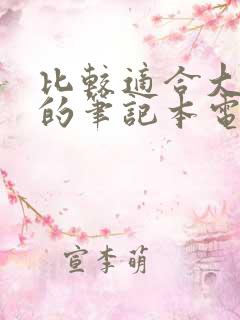 比較適合大
的筆記本電
宣李萌